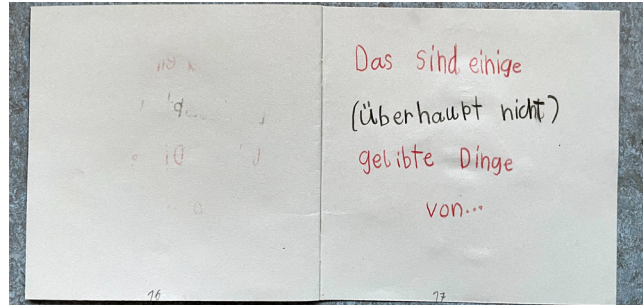 Das sind einige
(überhaupt nicht)
gelibte Dinge
von...
16
17